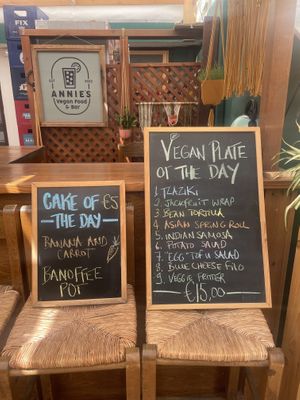 FIX
ANNIES
Vegan Food
& Bar
CAKE OF €5
THE DAY
BANANA AND
CARROT
BANOFFEE
POT
VEGAN PLATE
OF THE DAY
1 TZAZIKI
2 JACKFRUIT WRAP
3 BEAN TORTILLA
4 ASIAN SPRING ROLL
5 INDIAN SAMOSA
6 POTATO SALAD
7 "EGG" TOFU SALAD
8 BLUE CHEESE FILO
9 VEGGIE FRITTER
€15,00